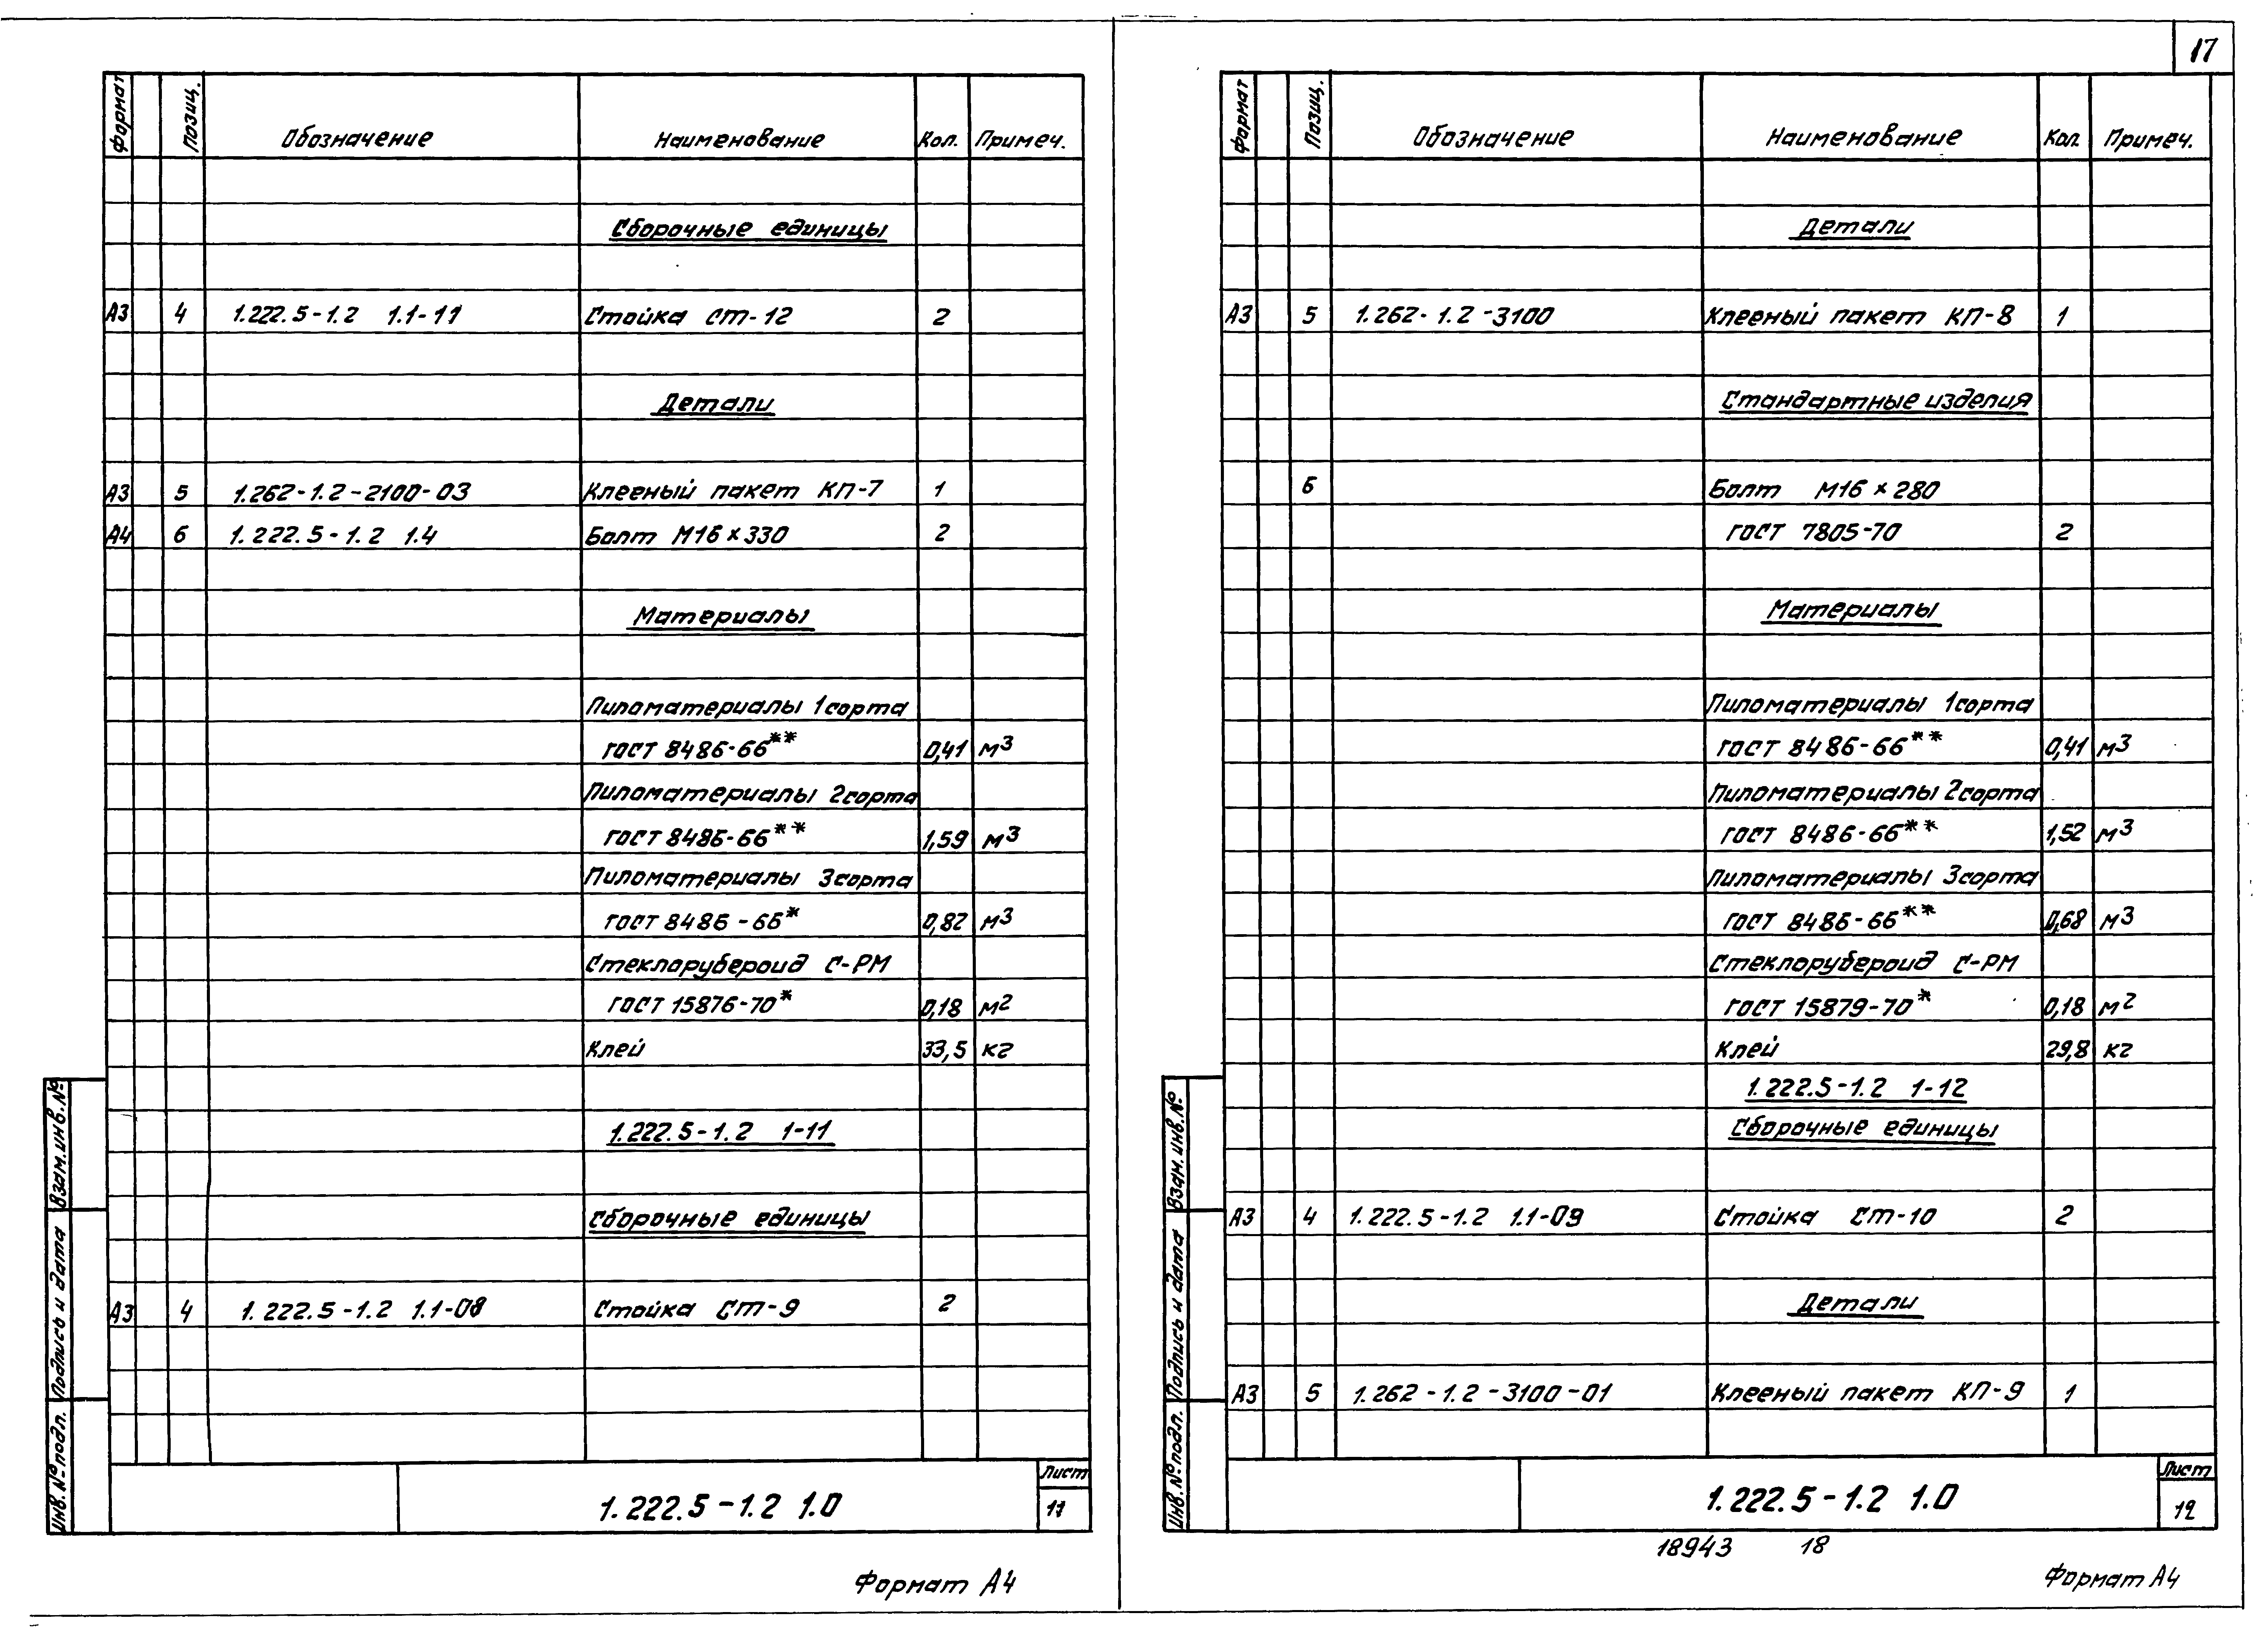 17
Формат Позиц. Обозначение Наименование Кол. Примеч.
Сборочные единицы
А3 4 1.222.5-1.2 1.1-11 Стойка СТ-12 2
Детали
А3 5 1.262-1.2-2100-03 Клееный пакет КП-7 1
А4 6 1.222.5-1.2 1.4 Болт М16×330 2
Материалы
Пиломатериалы 1сорта
ГОСТ 8486-66** 0,41 м3
Пиломатериалы 2сорта
ГОСТ 8486-66** 1,59 м3
Пиломатериалы 3сорта
ГОСТ 8486-66* 0,82 м3
Стеклорубероид С-РМ
ГОСТ 15876-70* 0,18 м2
Клей 33,5 кг
1.222.5-1.2 1-11
Сборочные единицы
А3 4 1.222.5-1.2 1.1-08 Стойка СТ-9 2
Взам.инв.№
Подпись и дата
Инв.№подл.
1.222.5-1.2 1.0
Лист
11
Формат А4
Формат Позиц. Обозначение Наименование Кол. Примеч.
Детали
А3 5 1.262-1.2-3100 Клееный пакет КП-8 1
Стандартные изделия
6 Болт М16×280
ГОСТ 7805-70 2
Материалы
Пиломатериалы 1сорта
ГОСТ 8486-66** 0,41 м3
Пиломатериалы 2сорта
ГОСТ 8486-66** 1,52 м3
Пиломатериалы 3сорта
ГОСТ 8486-66** 0,68 м3
Стеклорубероид С-РМ
ГОСТ 15879-70* 0,18 м2
Клей 29,8 кг
1.222.5-1.2 1-12
Сборочные единицы
А3 4 1.222.5-1.2 1.1-09 Стойка СТ-10 2
Детали
А3 5 1.262-1.2-3100-01 Клееный пакет КП-9 1
Взам.инв.№
Подпись и дата
Инв.№подл.
1.222.5-1.2 1.0
Лист
12
18943 18
Формат А4